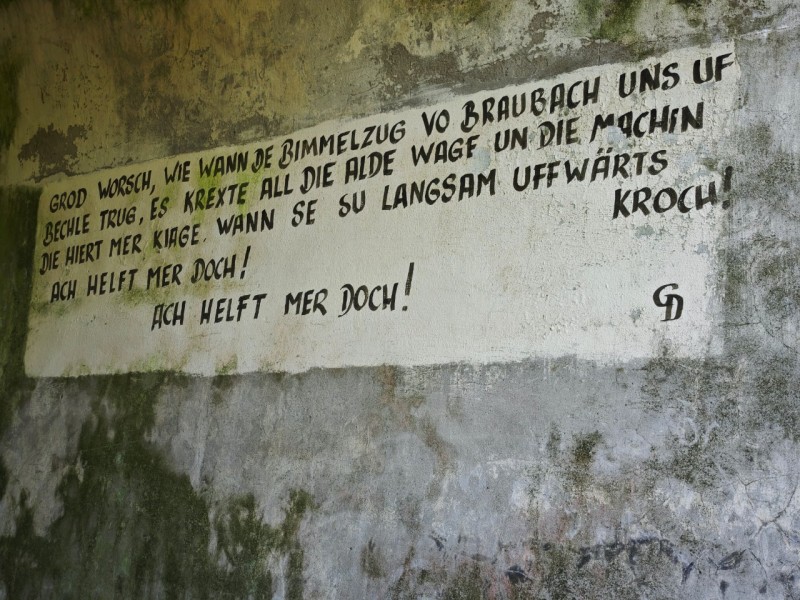 GROD WORSCH, WIE WANN DE BIMMELZUG VO BRAUBACH UNS UF
BECHLE TRUG, ES KREXTE ALL DIE ALDE WAGE UN DIE MACHIN
DIE HIERT MER KIAGE. WANN SE SU LANGSAM UFFWÄRTS
KROCH!
ACH HELFT MER DOCH!
ACH HELFT MER DOCH!
GD